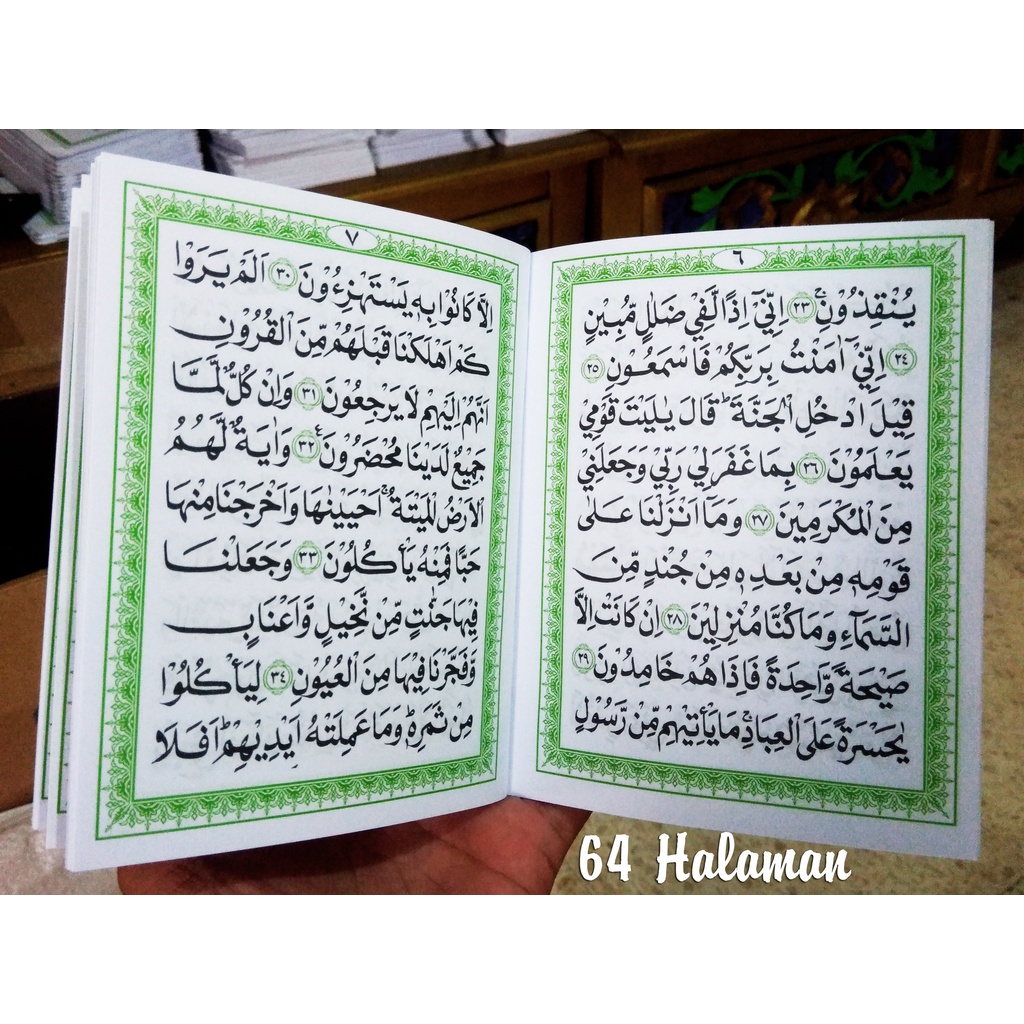 ٦
يُنْقِذُوْنِۚ ٢٣ اِنِّيْٓ اِذًا لَّفِيْ ضَلٰلٍ مُّبِيْنٍ
٢٤ اِنِّيْٓ اٰمَنْتُ بِرَبِّكُمْ فَاسْمَعُوْنِ ٢٥
قِيْلَ ادْخُلِ الْجَنَّةَ ۗ قَالَ يٰلَيْتَ قَوْمِيْ
يَعْلَمُوْنَ ٢٦ بِمَا غَفَرَلِيْ رَبِّيْ وَجَعَلَنِيْ
مِنَ الْمُكْرَمِيْنَ ٢٧ وَمَآ اَنْزَلْنَا عَلٰى
قَوْمِهٖ مِنْۢ بَعْدِهٖ مِنْ جُنْدٍ مِّنَ
السَّمَاۤءِ وَمَا كُنَّا مُنْزِلِيْنَ ٢٨ اِنْ كَانَتْ اِلَّا
صَيْحَةً وَّاحِدَةً فَاِذَا هُمْ خَامِدُوْنَ ٢٩
يٰحَسْرَةً عَلَى الْعِبَادِۚ مَا يَأْتِيْهِمْ مِّنْ رَّسُوْلٍ
٧
اِلَّا كَانُوْا بِهٖ يَسْتَهْزِءُوْنَ ٣٠ اَلَمْ يَرَوْا
كَمْ اَهْلَكْنَا قَبْلَهُمْ مِّنَ الْقُرُوْنِ
اَنَّهُمْ اِلَيْهِمْ لَا يَرْجِعُوْنَ ٣١ وَاِنْ كُلٌّ لَّمَّا
جَمِيْعٌ لَّدَيْنَا مُحْضَرُوْنَ ٣٢ وَاٰيَةٌ لَّهُمُ
الْاَرْضُ الْمَيْتَةُ ۚ اَحْيَيْنٰهَا وَاَخْرَجْنَا مِنْهَا
حَبًّا فَمِنْهُ يَأْكُلُوْنَ ٣٣ وَجَعَلْنَا
فِيْهَا جَنّٰتٍ مِّنْ نَّخِيْلٍ وَّاَعْنَابٍ
وَّفَجَّرْنَا فِيْهَا مِنَ الْعُيُوْنِ ٣٤ لِيَأْكُلُوْا
مِنْ ثَمَرِهٖ وَمَا عَمِلَتْهُ اَيْدِيْهِمْ ۗ اَفَلَا
64 Halaman